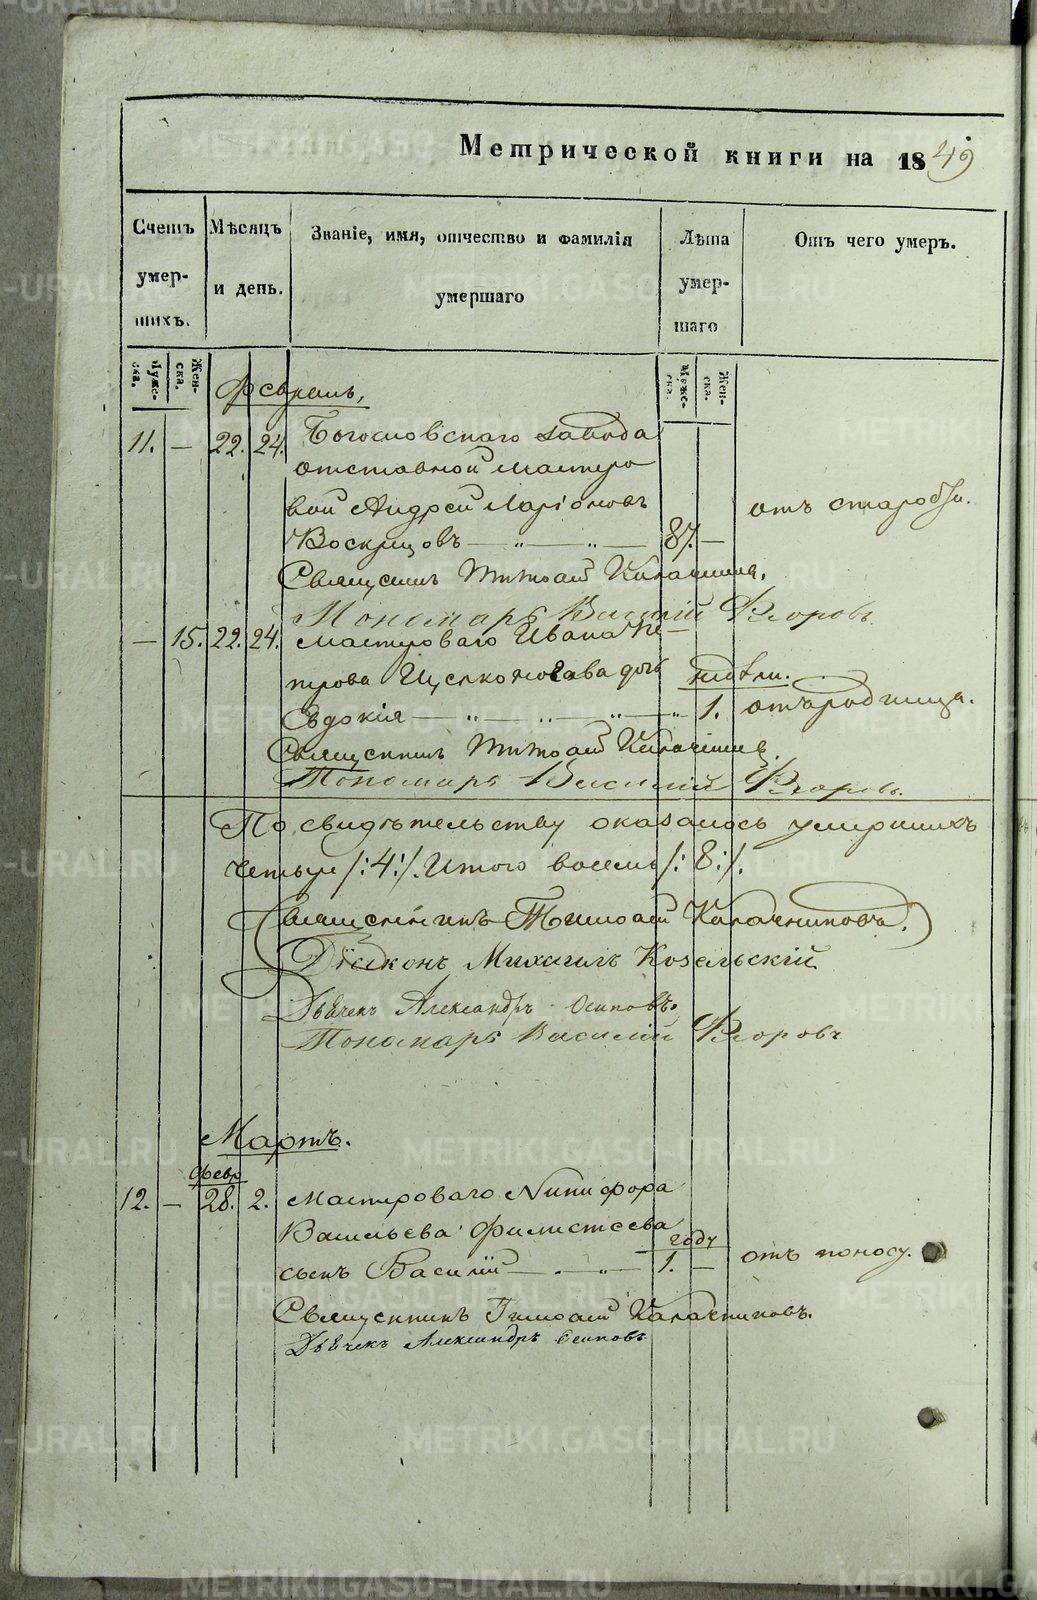 Метрической книги на 1849
Счетъ умер-шихъ.
Мѣсяцъ и день.
Званіе, имя, отчество и фамилія умершаго
Лѣта умер-шаго
Отъ чего умеръ.
Муже-ска.
Жен-ска.
Муже-ска.
Жен-ска.
Февраль,
11. — 22. 24. Богословскаго завода
отставной мастеро
вой Андрей Ларіоновъ
Воскрецовъ — „ — „ — 87. — отъ старости.
Священникъ Тимоѳей
Пономарь Василій Ѳедоровъ
— 15. 22. 24. Мастероваго Ивана Пе
трова дочь недѣли.
Евдокія — „ — „ — „ — „ 1. отъ родимца.
Священникъ Тимоѳей
Пономарь Василій Ѳедоровъ.
По свидѣтельству оказалось умершихъ
четыре /:4:/. Итого восемь /:8:/.
Священникъ Тимоѳей Калачниковъ.
Діаконъ Михаилъ Козельскій
Дьячекъ Александръ Осиповъ.
Пономарь Василій Ѳедоровъ
Мартъ.
Февр
12. — 28. 2. Мастероваго Никифора
Васильева Филистеева году
сынъ Василій — „ — „ — 1. — отъ поносу.
Священникъ Тимоѳей Калачниковъ.
Дьячекъ Александръ Осиповъ
METRIKI.GASO-URAL.RU